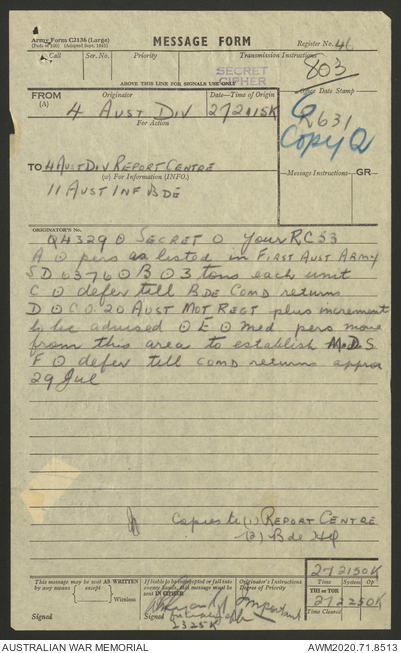 Army Form C2136 (Large)
(Pads of 100) (Adopted Sept. 1941)
MESSAGE FORM
Register No. 46
Call
Ser. No.
Priority
Transmission Instructions
SECRET
CIPHER
803
ABOVE THIS LINE FOR SIGNALS USE ONLY
FROM
(A)
Originator
Date—Time of Origin
Office Date Stamp
4 AUST DIV
272115K
For Action
R631
Copy 2
TO 4 AUST DIV REPORT CENTRE
(w) For Information (INFO.)
Message Instructions
GR
11 AUST INF BDE
ORIGINATOR'S NO.
Q4329 O SECRET O Your RC33
A O pers as listed in FIRST AUST ARMY
SD 6376 O B O 3 tons each unit
C O defer till BDE COMD returns
D O C O 20 AUST MOT REGT plus increment
to be advised O E O med pers move
from this area to establish M.D.S
F O defer till COMD returns approx
29 Jul
Copies to (1) REPORT CENTRE
(2) Bde HQ
This message may be sent AS WRITTEN
by any means
except
Wireless
Signed
If liable to be intercepted or fall into
enemy hands, this message must be
sent IN CIPHER
Signed
2325K
Originator's Instructions
Degree of Priority
Important
272150K
Time
System
Op
THI or TOR
272250K
Time
AUSTRALIAN WAR MEMORIAL
AWM2020.71.8513